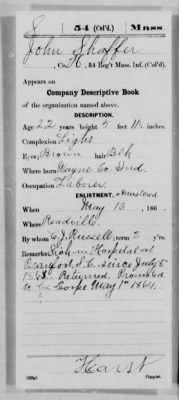 S | 54 (Col'd.) | Mass
John Shaffer
, Co. H, 54 Reg't Mass. Inf. (Col'd.)
Appears on
Company Descriptive Book
of the organization named above.
DESCRIPTION.
Age 22 years; height 5 feet 11 inches
Complexion Light
Eyes Brown; hair Blk
Where born Wayne Co. Ind.
Occupation Laborer
ENLISTMENT.
When May 13, 186
Where Readville
By whom C. J. Russell; term 3 y'rs.
Remarks: Sick in Hospital at
Beaufort S.C. since July 5th
1863. Returned. Promoted
to be Corp. May 1st 1864.
Copyist.